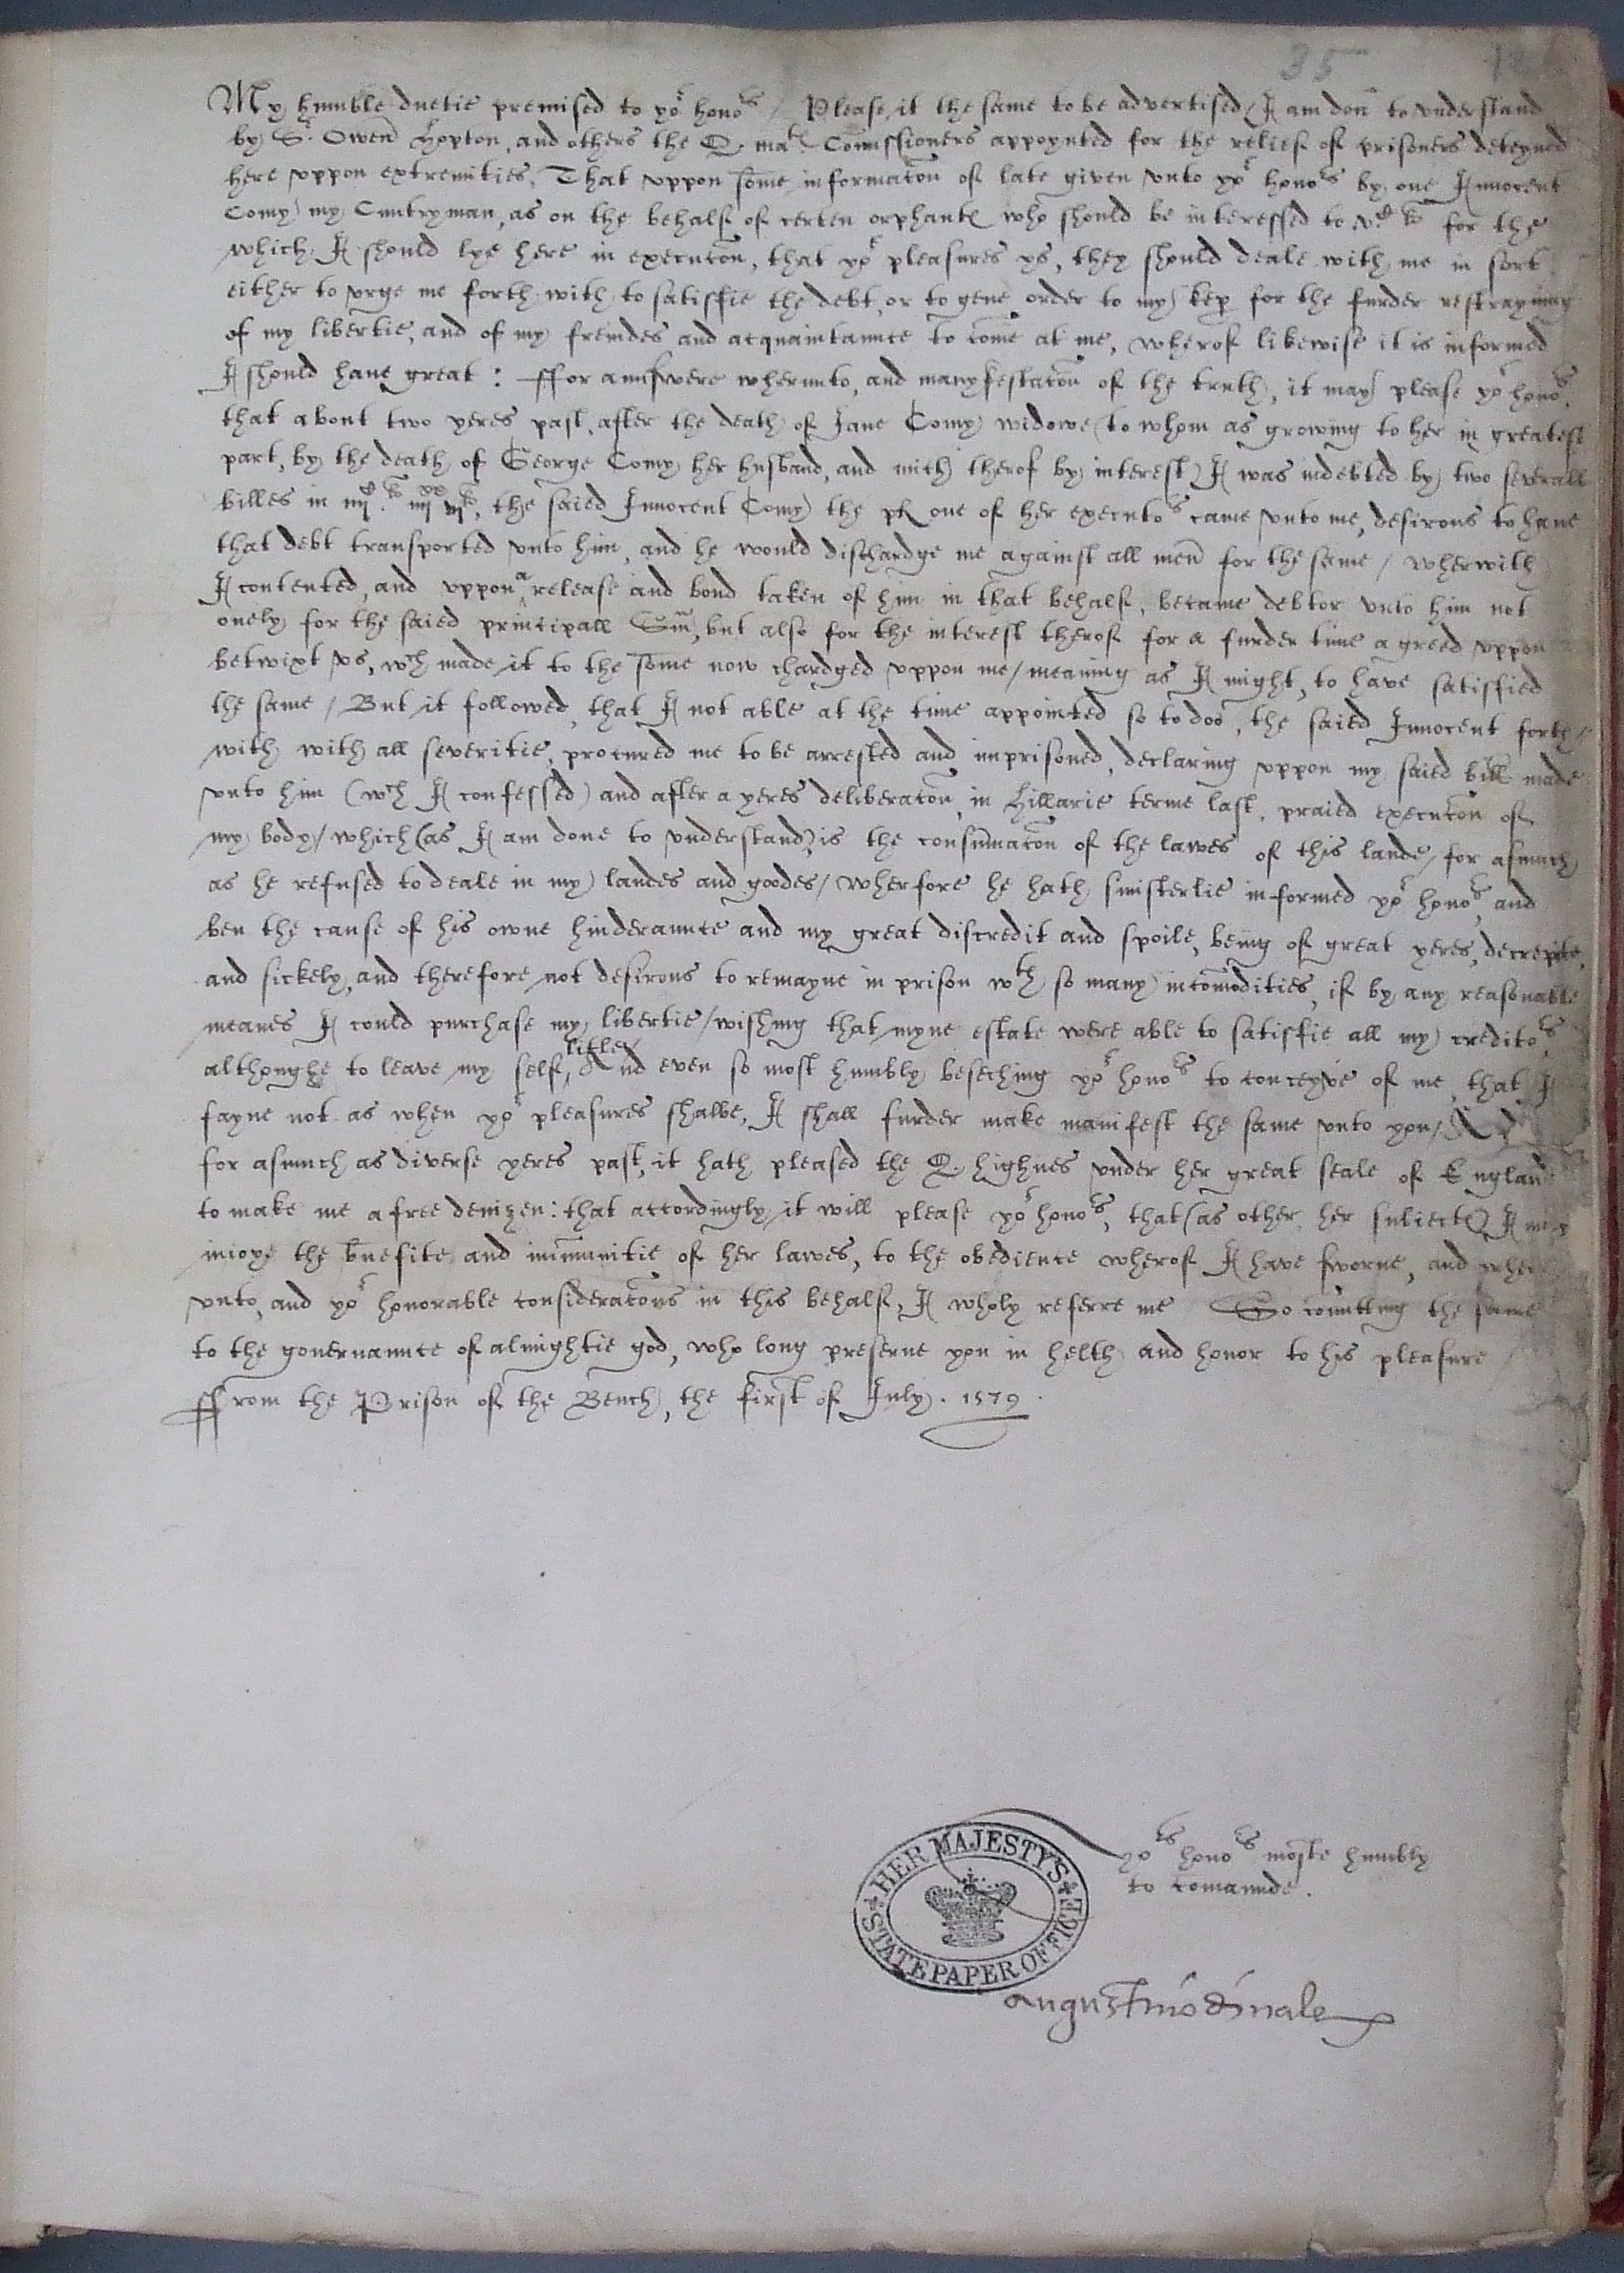 35
My humble duetie premised to yor honors / Please it the same to be advertised / I am don to vnderstand
by Sr. Owen Hopton, and others the Q. mates Comissioners appoynted for the relief of prisoners deteyned
here vppon extremities. That vppon some informacon of late given vnto yor honors by one Innocent
Comy my Cuntryman, as on the behalf of certen orphantes who should be interessed to vc li for the
which I should lye here in execucon, that yor pleasures ys, they should deale with me in sort
either to vrge me forth with to satisfie the debt, or to geue order to my kep for the furder restrayning
of my libertie, and of my freindes and acquaintaunce to come at me, wherof likewise it is informed
I should haue great : ffor aunswere wherunto, and manyfestacon of the truth, it may please yor honors.
that about two yeres past, after the death of Jane Comy widowe (to whom as growing to her in greatest
part, by the death of George Comy her husband, and mich therof by interest) I was indebted by two severall
billes in iiijc. li iiijxx vj li, the saied Innocent Comy the pst one of her executors came vnto me, desirous to haue
that debt transported vnto him, and he would dischardge me against all men for the same / wherwith
I contented, and vppon a release and bond taken of him in that behalf, became debtor vnto him not
onely for the saied principall Sum, but also for the interest therof for a furder time agreed vppon
betwixt vs, wch made it to the some now chardged vppon me / meaning as I might, to have satisfied
the same / But it followed, that I not able at the time appointed so to doo, the saied Innocent forth /
with with all severitie, procured me to be arrested and imprisoned, declaring vppon my saied bill made
vnto him (wch I confessed) and after a yeres deliberacon, in Hillarie terme last, praied execucon of
my body / which (as I am done to vnderstand) is the consummacon of the lawes of this lande / for asmuch
as he refused to deale in my landes and goodes / wherfore he hath sinisterlie informed yor honors, and
ben the cause of his owne hinderaunce and my great discredit and spoile, being of great yeres, decrepite,
and sickely, and therefore not desirous to remayne in prison wth so many incomodities, if by any reasonable
meanes I could purchase my libertie / wishing that myne estate were able to satisfie all my creditors,
althoughe to leave my self litle / And even so most humbly beseching yor honors to conceyve of me, that I
fayne not as when yor pleasures shalbe, I shall furder make manifest the same vnto you / And
for asmuch as diverse yeres past, it hath pleased the Q. highnes vnder her great seale of England
to make me a free denizen : that accordingly it will please yor honors, that (as other her subiectes) I may
inioye the benefite and immunitie of her lawes, to the obedience wherof I have sworne, and wher
vnto, and yor honorable consideracons in this behalf, I wholy referre me / So comitting the same
to the gouernaunce of almightie god, who long preserue you in helth and honor to his pleasure /
ffrom the Prison of the Bench, the first of July. 1579.
Yor honors moste humbly
to comaunde.
HER MAJESTY'S STATE PAPER OFFICE